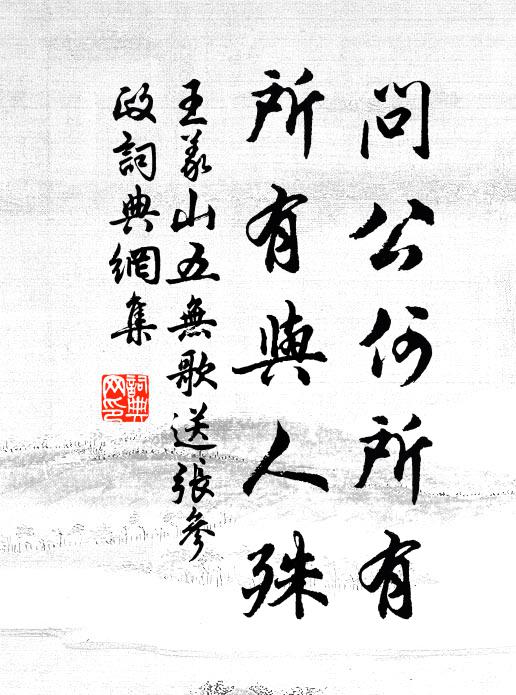 問公何所有
所有與人殊
王義山五無歌送張參
政詞典網集
詞典
网印